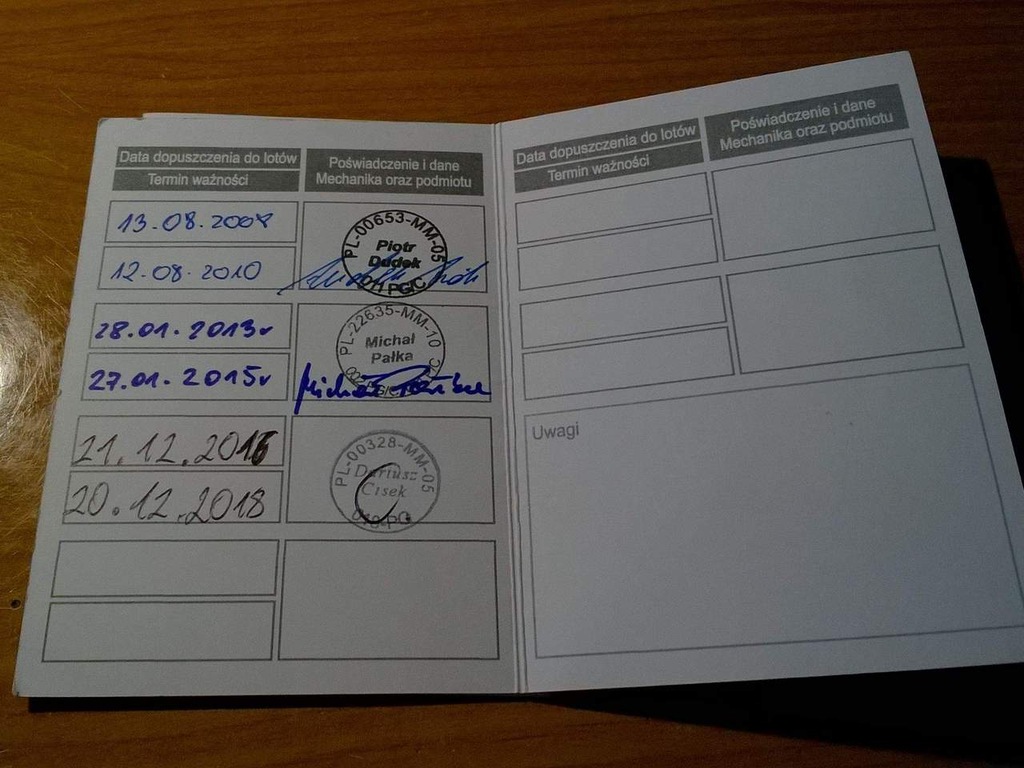 Data dopuszczenia do lotów
Termin ważności
Poświadczenie i dane
Mechanika oraz podmiotu
13.08.2008
12.08.2010
PL-00653-MM-05
Piotr
Dudek
28.01.2013r
27.01.2015r
PL-22635-MM-10
Michał
Pałka
Michał Pałka
21.12.2016
20.12.2018
PL-00328-MM-05
Dariusz
Cisek
Data dopuszczenia do lotów
Termin ważności
Poświadczenie i dane
Mechanika oraz podmiotu
Uwagi